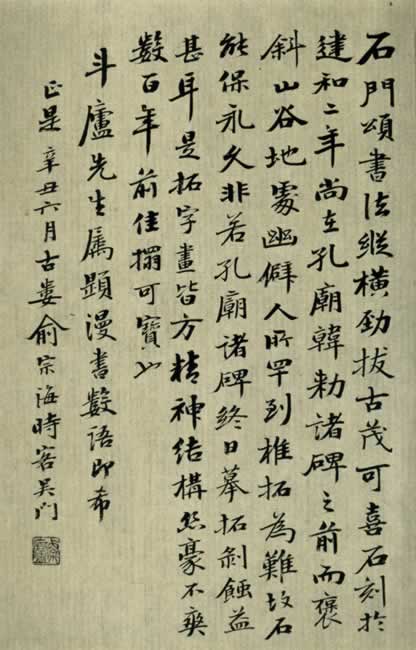 石門頌書法縱橫勁拔古茂可喜石刻於
建和二年尚在孔廟韓勅諸碑之前而褒
斜山谷地處幽僻人所罕到椎拓為難故石
能保永久非若孔廟諸碑終日摹拓剝蝕益
甚耳是拓字畫皆方精神結構絲豪不爽
數百年前佳搨可寶也
斗廬先生属題漫書數語即希
正是 辛丑六月古婁俞宗海時客吳門